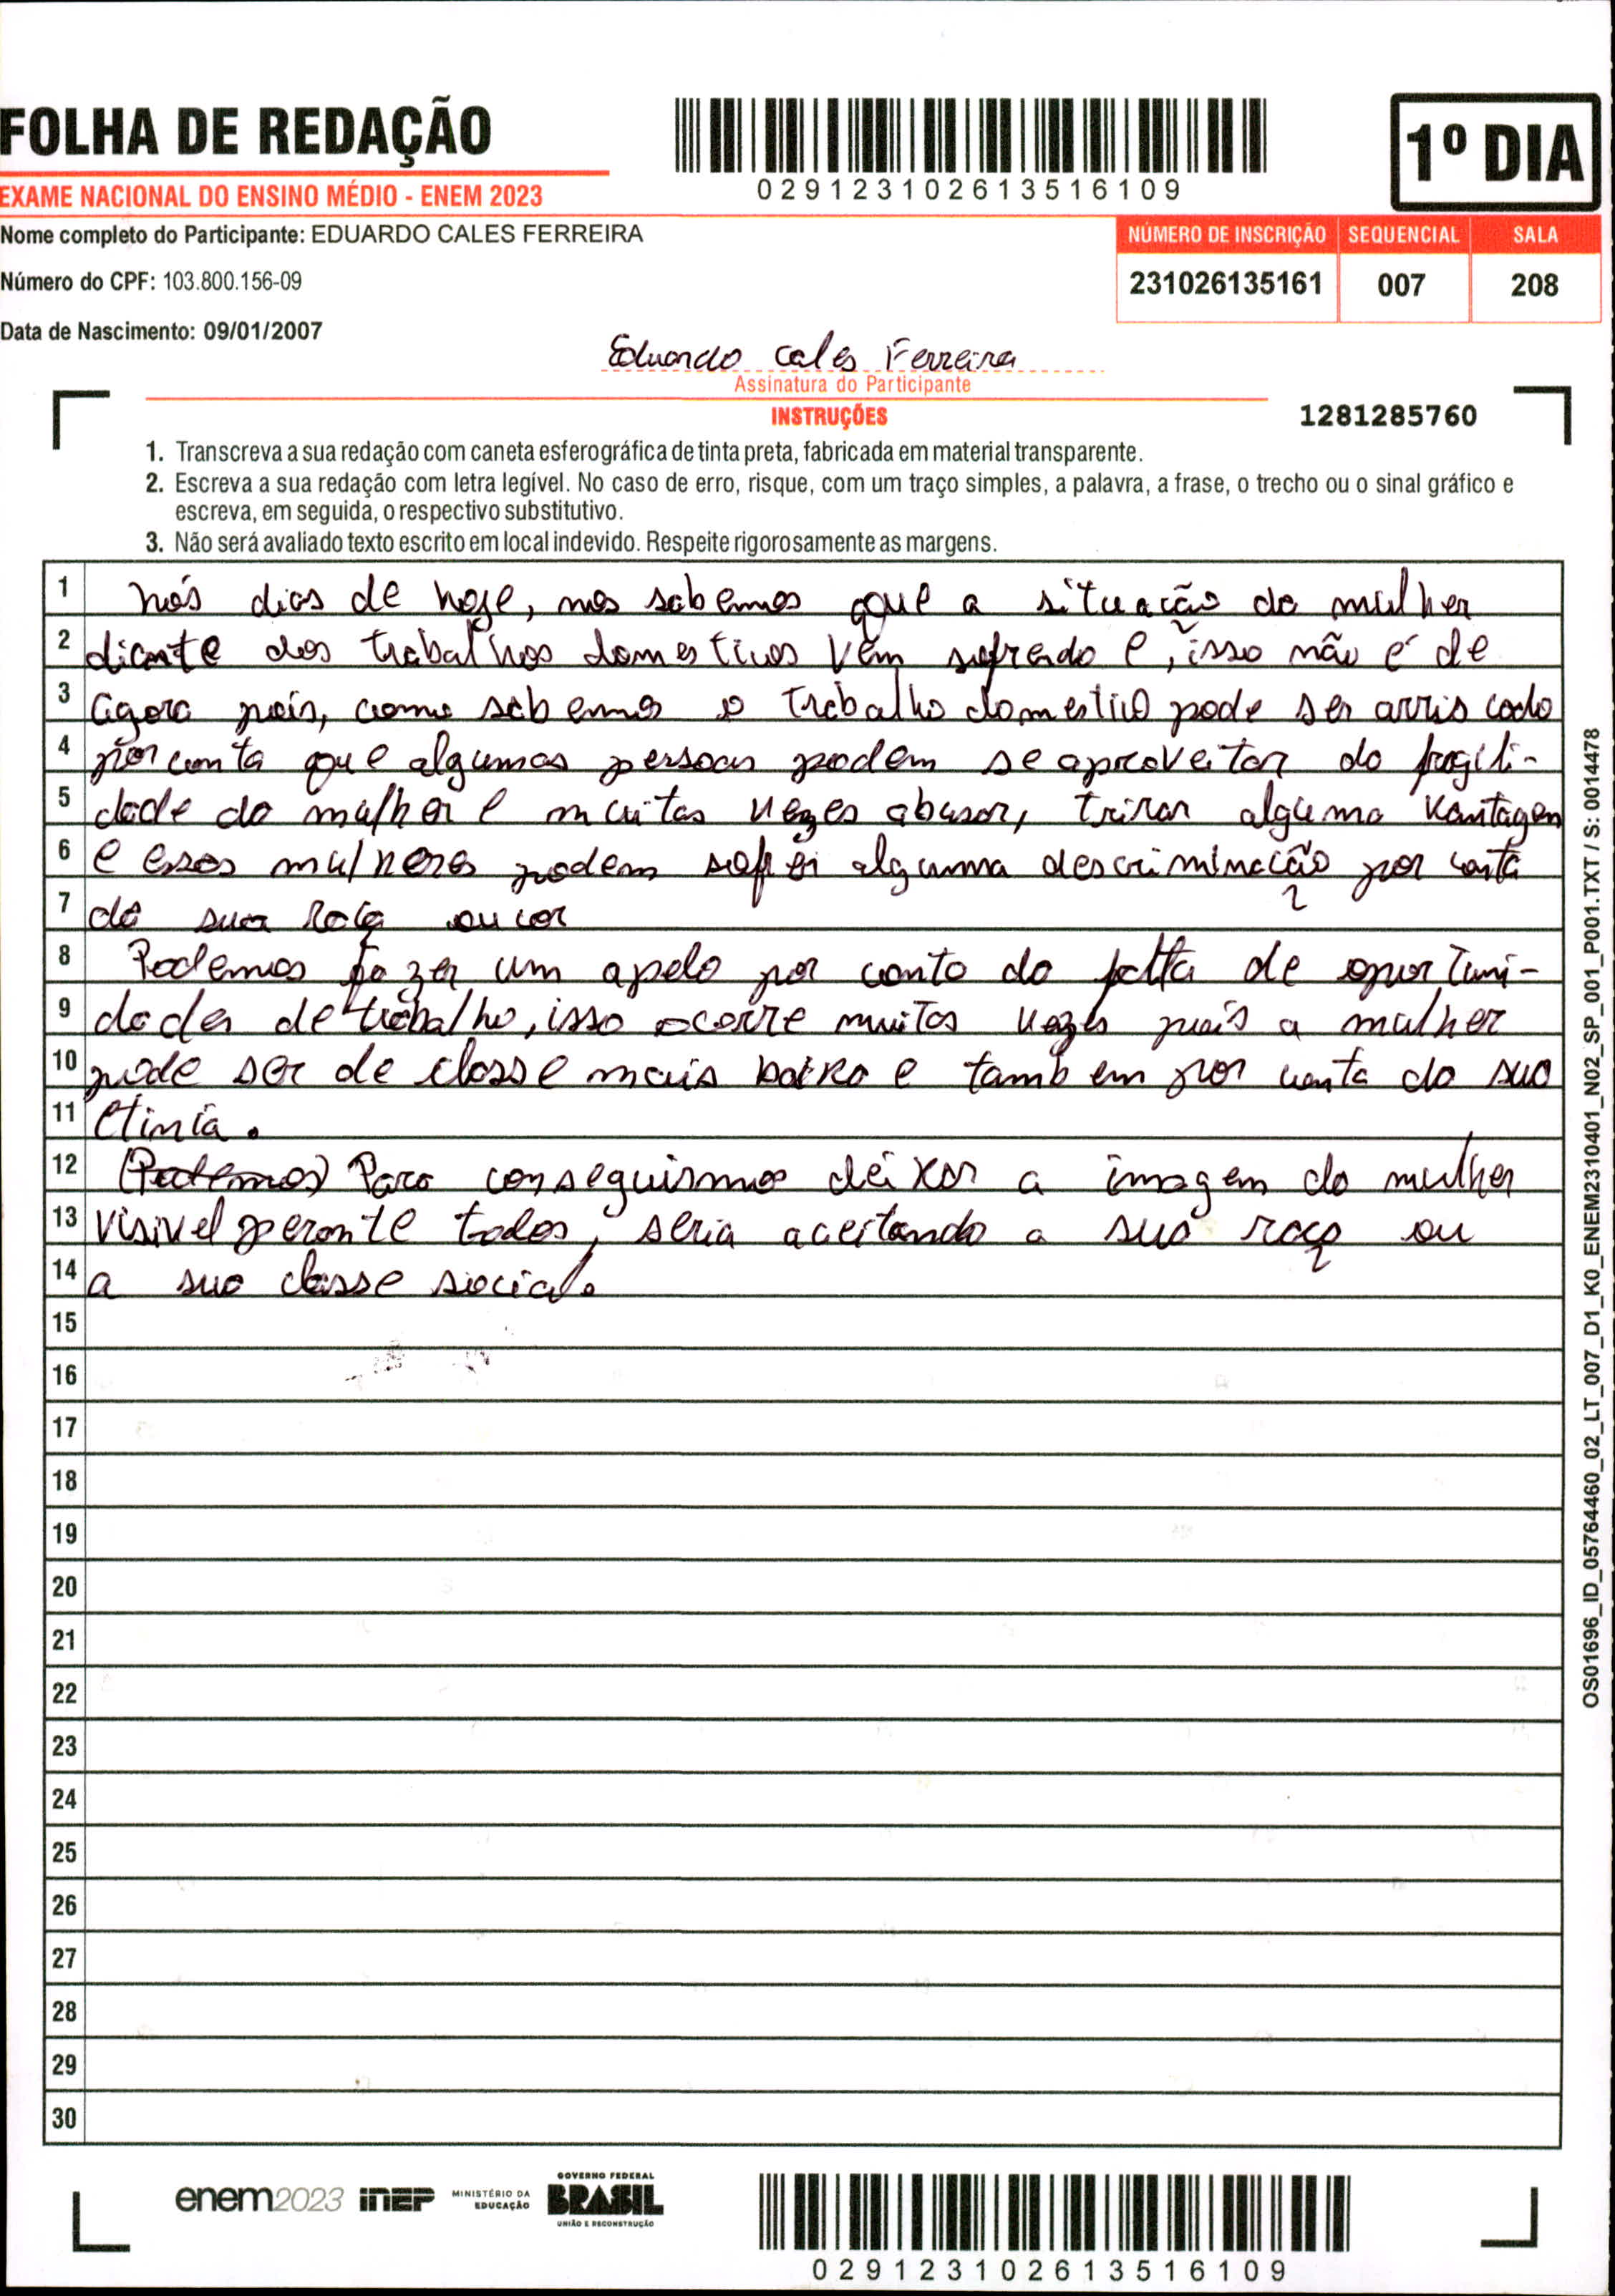 FOLHA DE REDAÇÃO
EXAME NACIONAL DO ENSINO MÉDIO - ENEM 2023
029123102613516109
1º DIA
Nome completo do Participante: EDUARDO CALES FERREIRA
Número do CPF: 103.800.156-09
Data de Nascimento: 09/01/2007
NÚMERO DE INSCRIÇÃO SEQUENCIAL SALA
231026135161 007 208
Eduardo Cales Ferreira
Assinatura do Participante
INSTRUÇÕES
1281285760
1. Transcreva a sua redação com caneta esferográfica de tinta preta, fabricada em material transparente.
2. Escreva a sua redação com letra legível. No caso de erro, risque, com um traço simples, a palavra, a frase, o trecho ou o sinal gráfico e
escreva, em seguida, o respectivo substitutivo.
3. Não será avaliado texto escrito em local indevido. Respeite rigorosamente as margens.
1 Nós dias de hoje, nos sabemos que a situação da mulher
2 diante dos trabalhos domesticos vêm sofrendo e, isso não é de
3 agora pois, como sabemos o trabalho domestico pode ser arriscado
4 por conta que algumas pessoas podem se aproveitar da fragili-
5 dade da mulher e muitas vezes abusar, trirar alguma vantagem
6 e essas mulheres podem sofrer alguma descriminação por conta
7 da sua raça ou cor
8 Podemos fazer um apelo por conta da falta de oportuni-
9 dades de trabalho, isso ocorre muitas vezes pois a mulher
10 pode ser de classe mais baixa e tambem por conta da sua
11 etinia.
12 (Podemos) Para conseguirmos deixar a imagem da mulher
13 visivel perante todos, seria aceitando a sua raça ou
14 a sua classe social.
15
16
17
18
19
20
21
22
23
24
25
26
27
28
29
30
OS01696_ID_05764460_02_LT_007_D1_K0_ENEM2310401_N02_SP_001_P001.TXT / S: 0014478
enem2023 inep MINISTÉRIO DA EDUCAÇÃO GOVERNO FEDERAL BRASIL UNIÃO E RECONSTRUÇÃO
029123102613516109